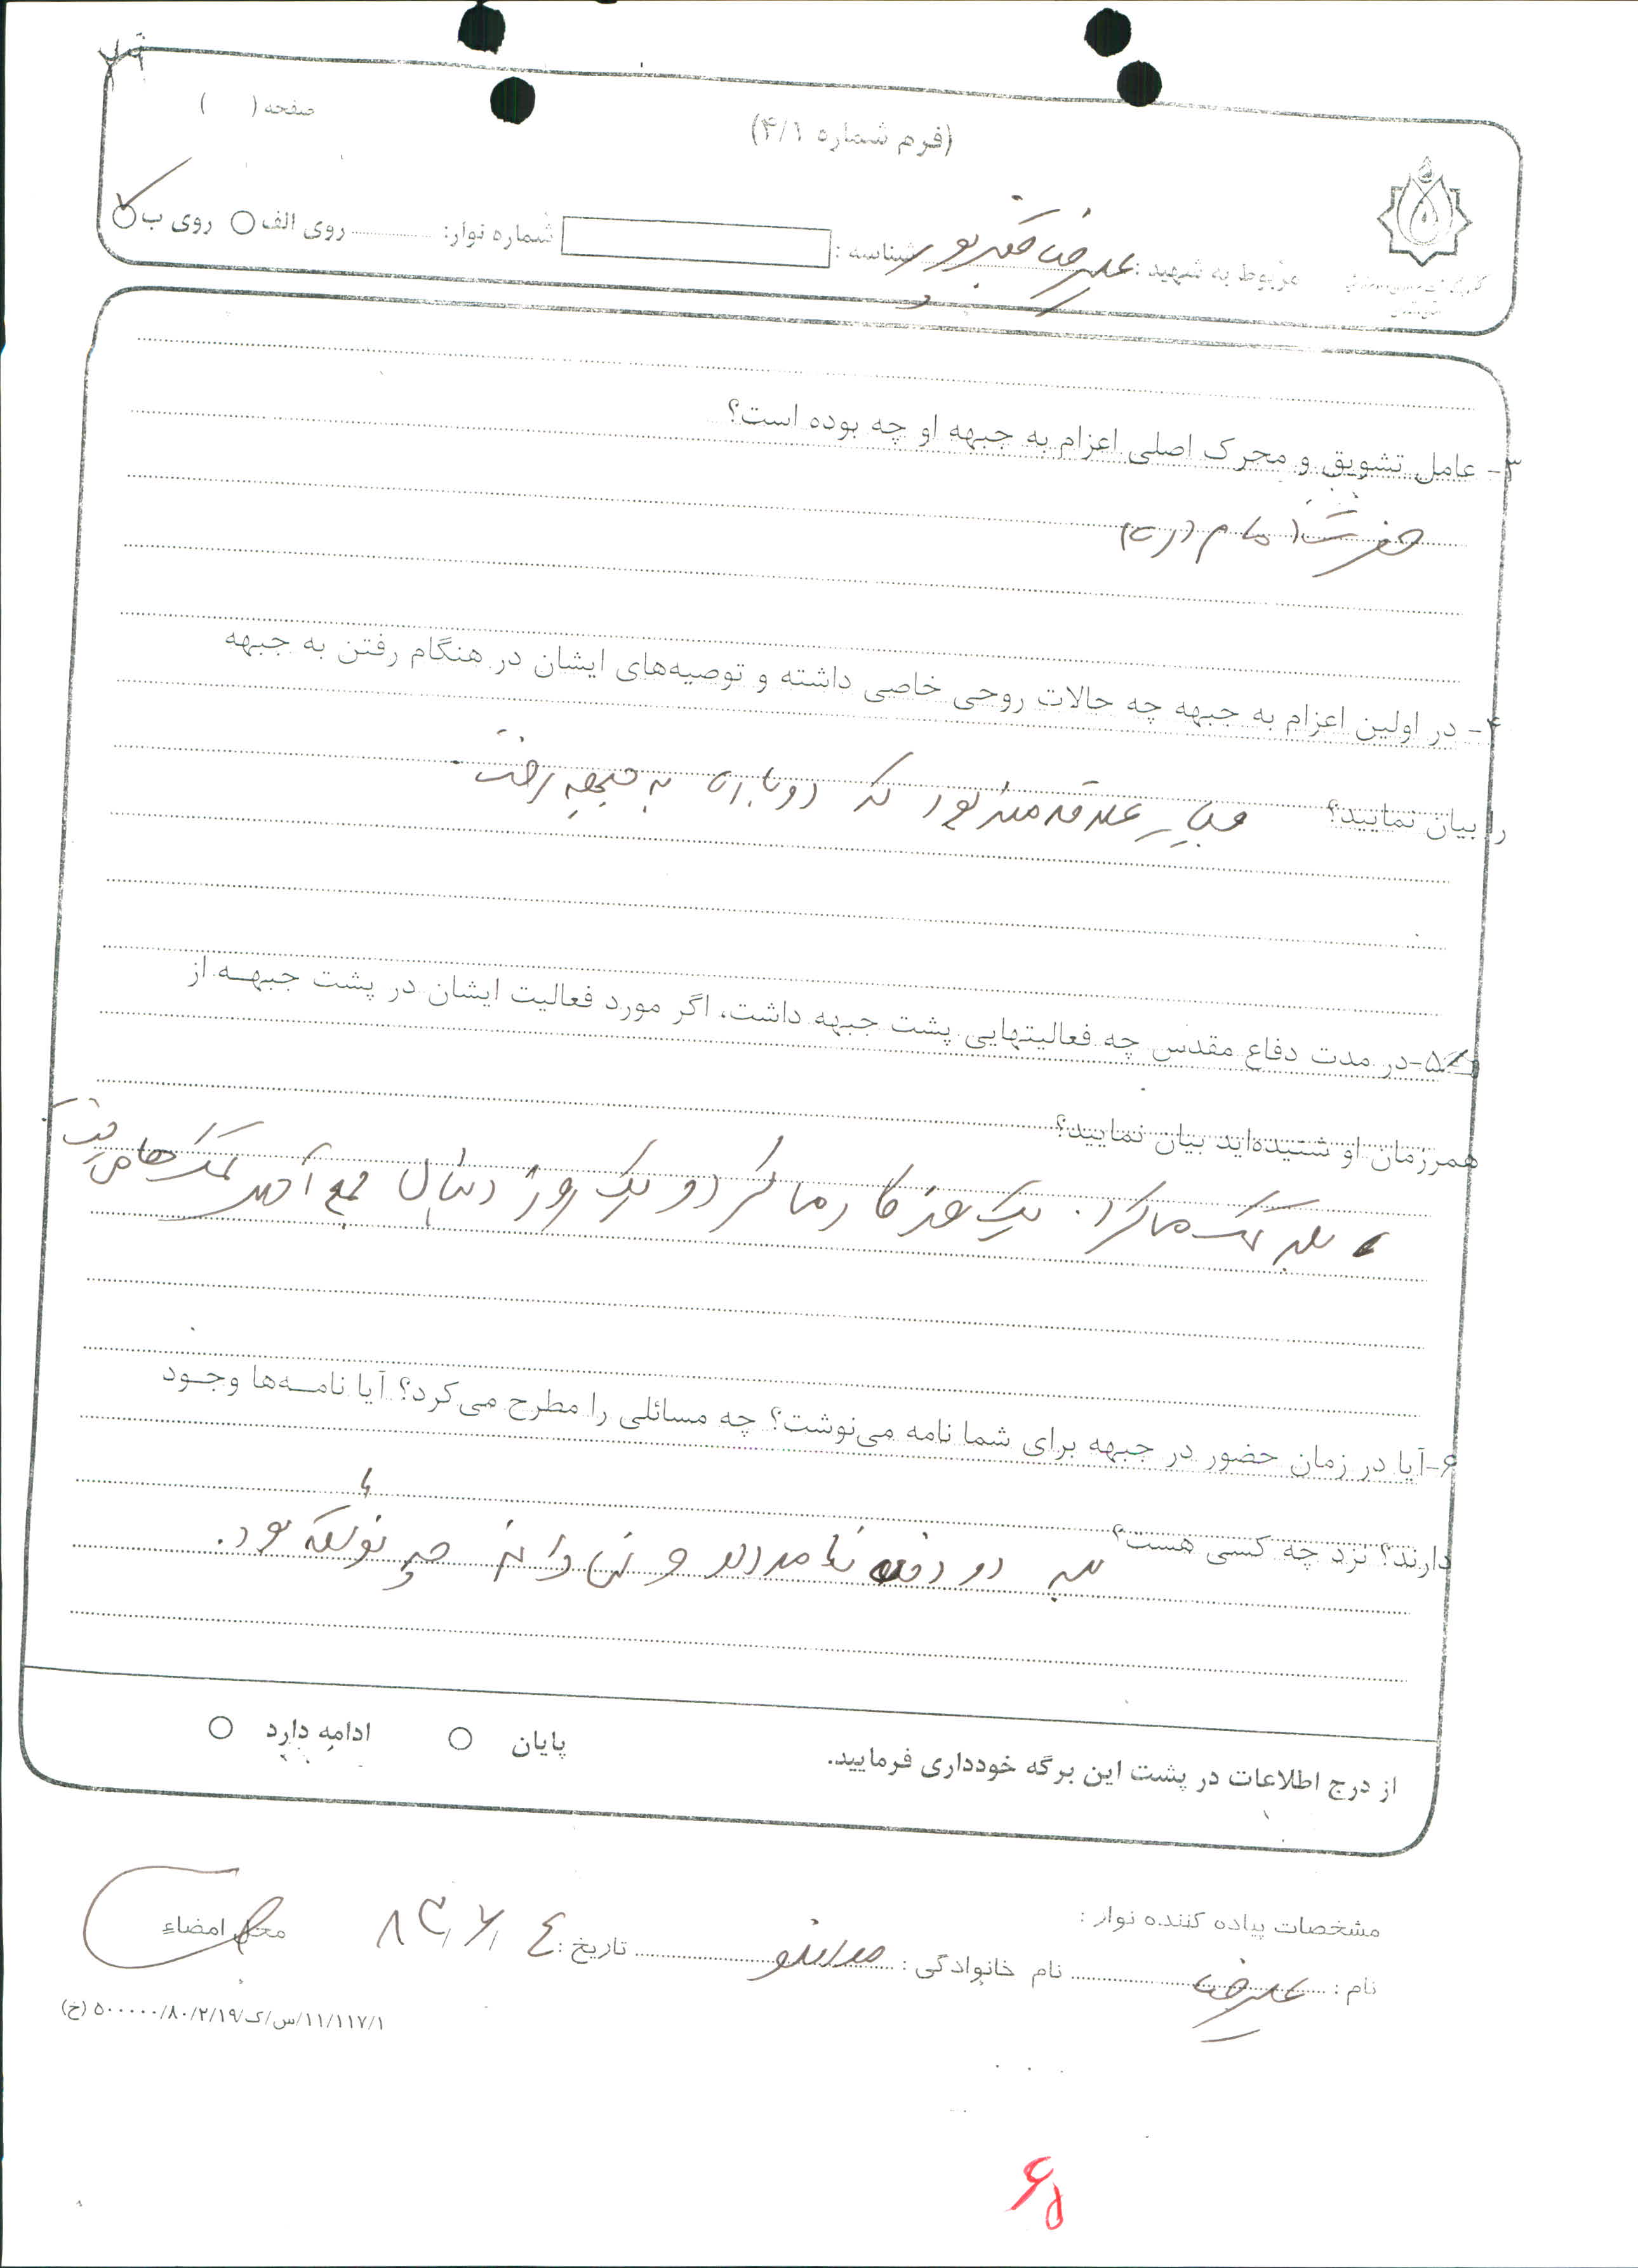 (فرم شماره ۴/۱)
صفحه (     )
مربوط به شهید : علیرضا قنبرپور شناسه : شماره نوار: روی الف روی ب
۳- عامل تشویق و محرک اصلی اعزام به جبهه او چه بوده است؟
حضرت امام (ره)
۴- در اولین اعزام به جبهه چه حالات روحی خاصی داشته و توصیه‌های ایشان در هنگام رفتن به جبهه
را بیان نمایید؟ علاقه‌مند بود که دوباره به جبهه رفت.
۵-در مدت دفاع مقدس چه فعالیتهایی پشت جبهه داشت، اگر مورد فعالیت ایشان در پشت جبهه از
همرزمان او شنیده‌اید بیان نمایید؟
بله کمک می‌کرد. یک روز کار می‌کرد و یک روز دنبال جمع آوری کمک‌ها می‌رفت.
۶-آیا در زمان حضور در جبهه برای شما نامه می‌نوشت؟ چه مسائلی را مطرح می‌کرد؟ آیا نامه‌ها وجود
دارند؟ نزد چه کسی هست؟
بله دو دفعه نامه داد و نمی‌دانم چه نوشته بود.
از درج اطلاعات در پشت این برگه خودداری فرمایید. پایان ادامه دارد
مشخصات پیاده کننده نوار :
نام : علیرضا نام خانوادگی : تاریخ : ۸۳/۷/۴ محل امضاء
۱۱/۱۱۷/۱/س/ک/۸۰/۲/۱۹/۵۰۰۰۰۰ (خ)
۶۵